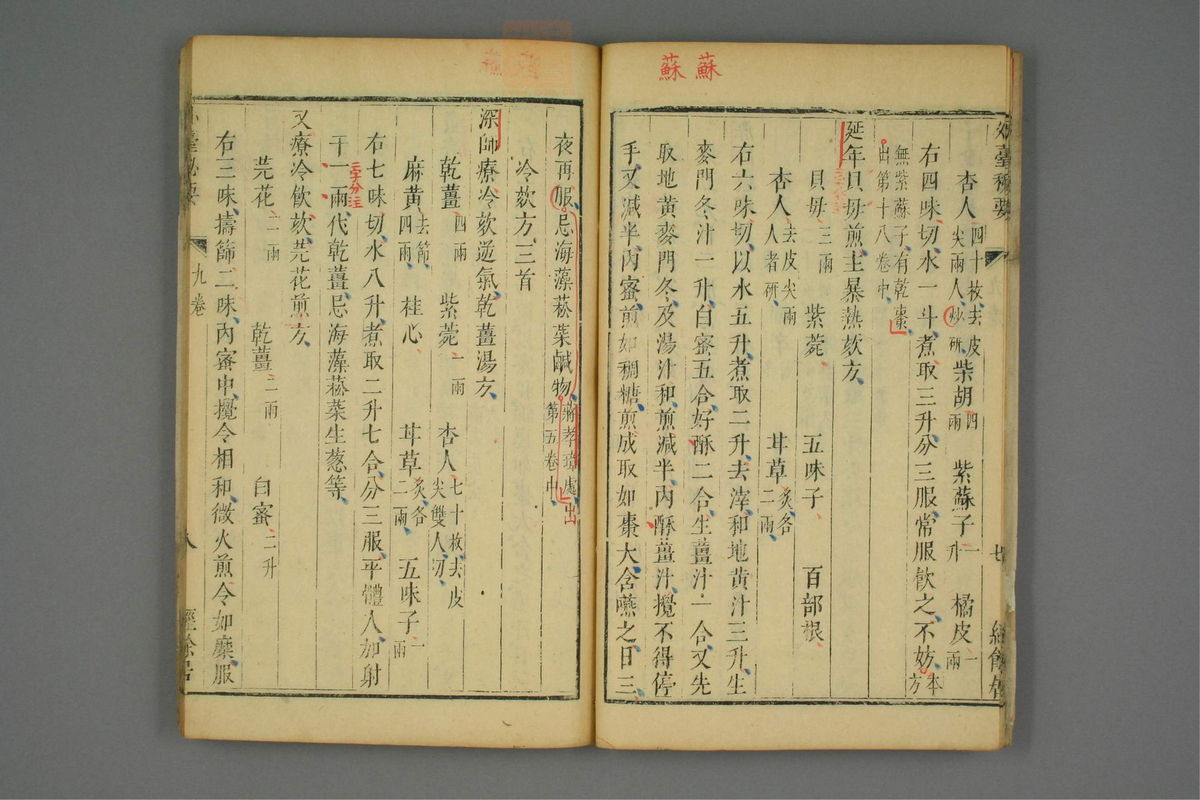 蘇
蘇
外臺秘要
七
經餘居
杏人四十枚去皮尖兩人炒研 柴胡四兩 紫蘇子一升 橘皮一兩
右四味切水一斗煮取三升分三服常服飲之不妨本方
無紫蘇子有乾棗
出第十八卷中
延年貝母煎主暴熱欬方
貝母三兩 紫菀 五味子 百部根
杏人去皮尖兩人者研 甘草二兩炙各
右六味切以水五升煮取二升去滓和地黃汁三升生
麥門冬汁一升白蜜五合好酥二合生薑汁一合又先
取地黃麥門冬及湯汁和煎減半內酥薑汁攪不得停
手又減半內蜜煎如稠糖煎成取如棗大含嚥之日三
夜再服忌海藻菘菜鹹物蔣孝璋處出第五卷中
冷欬方三首
深師療冷欬逆氣乾薑湯方
乾薑四兩 紫菀一兩 杏人七十枚去皮尖雙人切
麻黃去節四兩 桂心 甘草炙各二兩 五味子一兩
右七味切水八升煮取二升七合分三服平體人加射
干一兩代乾薑忌海藻菘菜生蔥等
三字分注
又療冷飲欬芫花煎方
芫花二兩 乾薑二兩 白蜜二升
右三味擣篩二味內蜜中攪令相和微火煎令如糜服
外臺秘要
九卷
八
經餘居